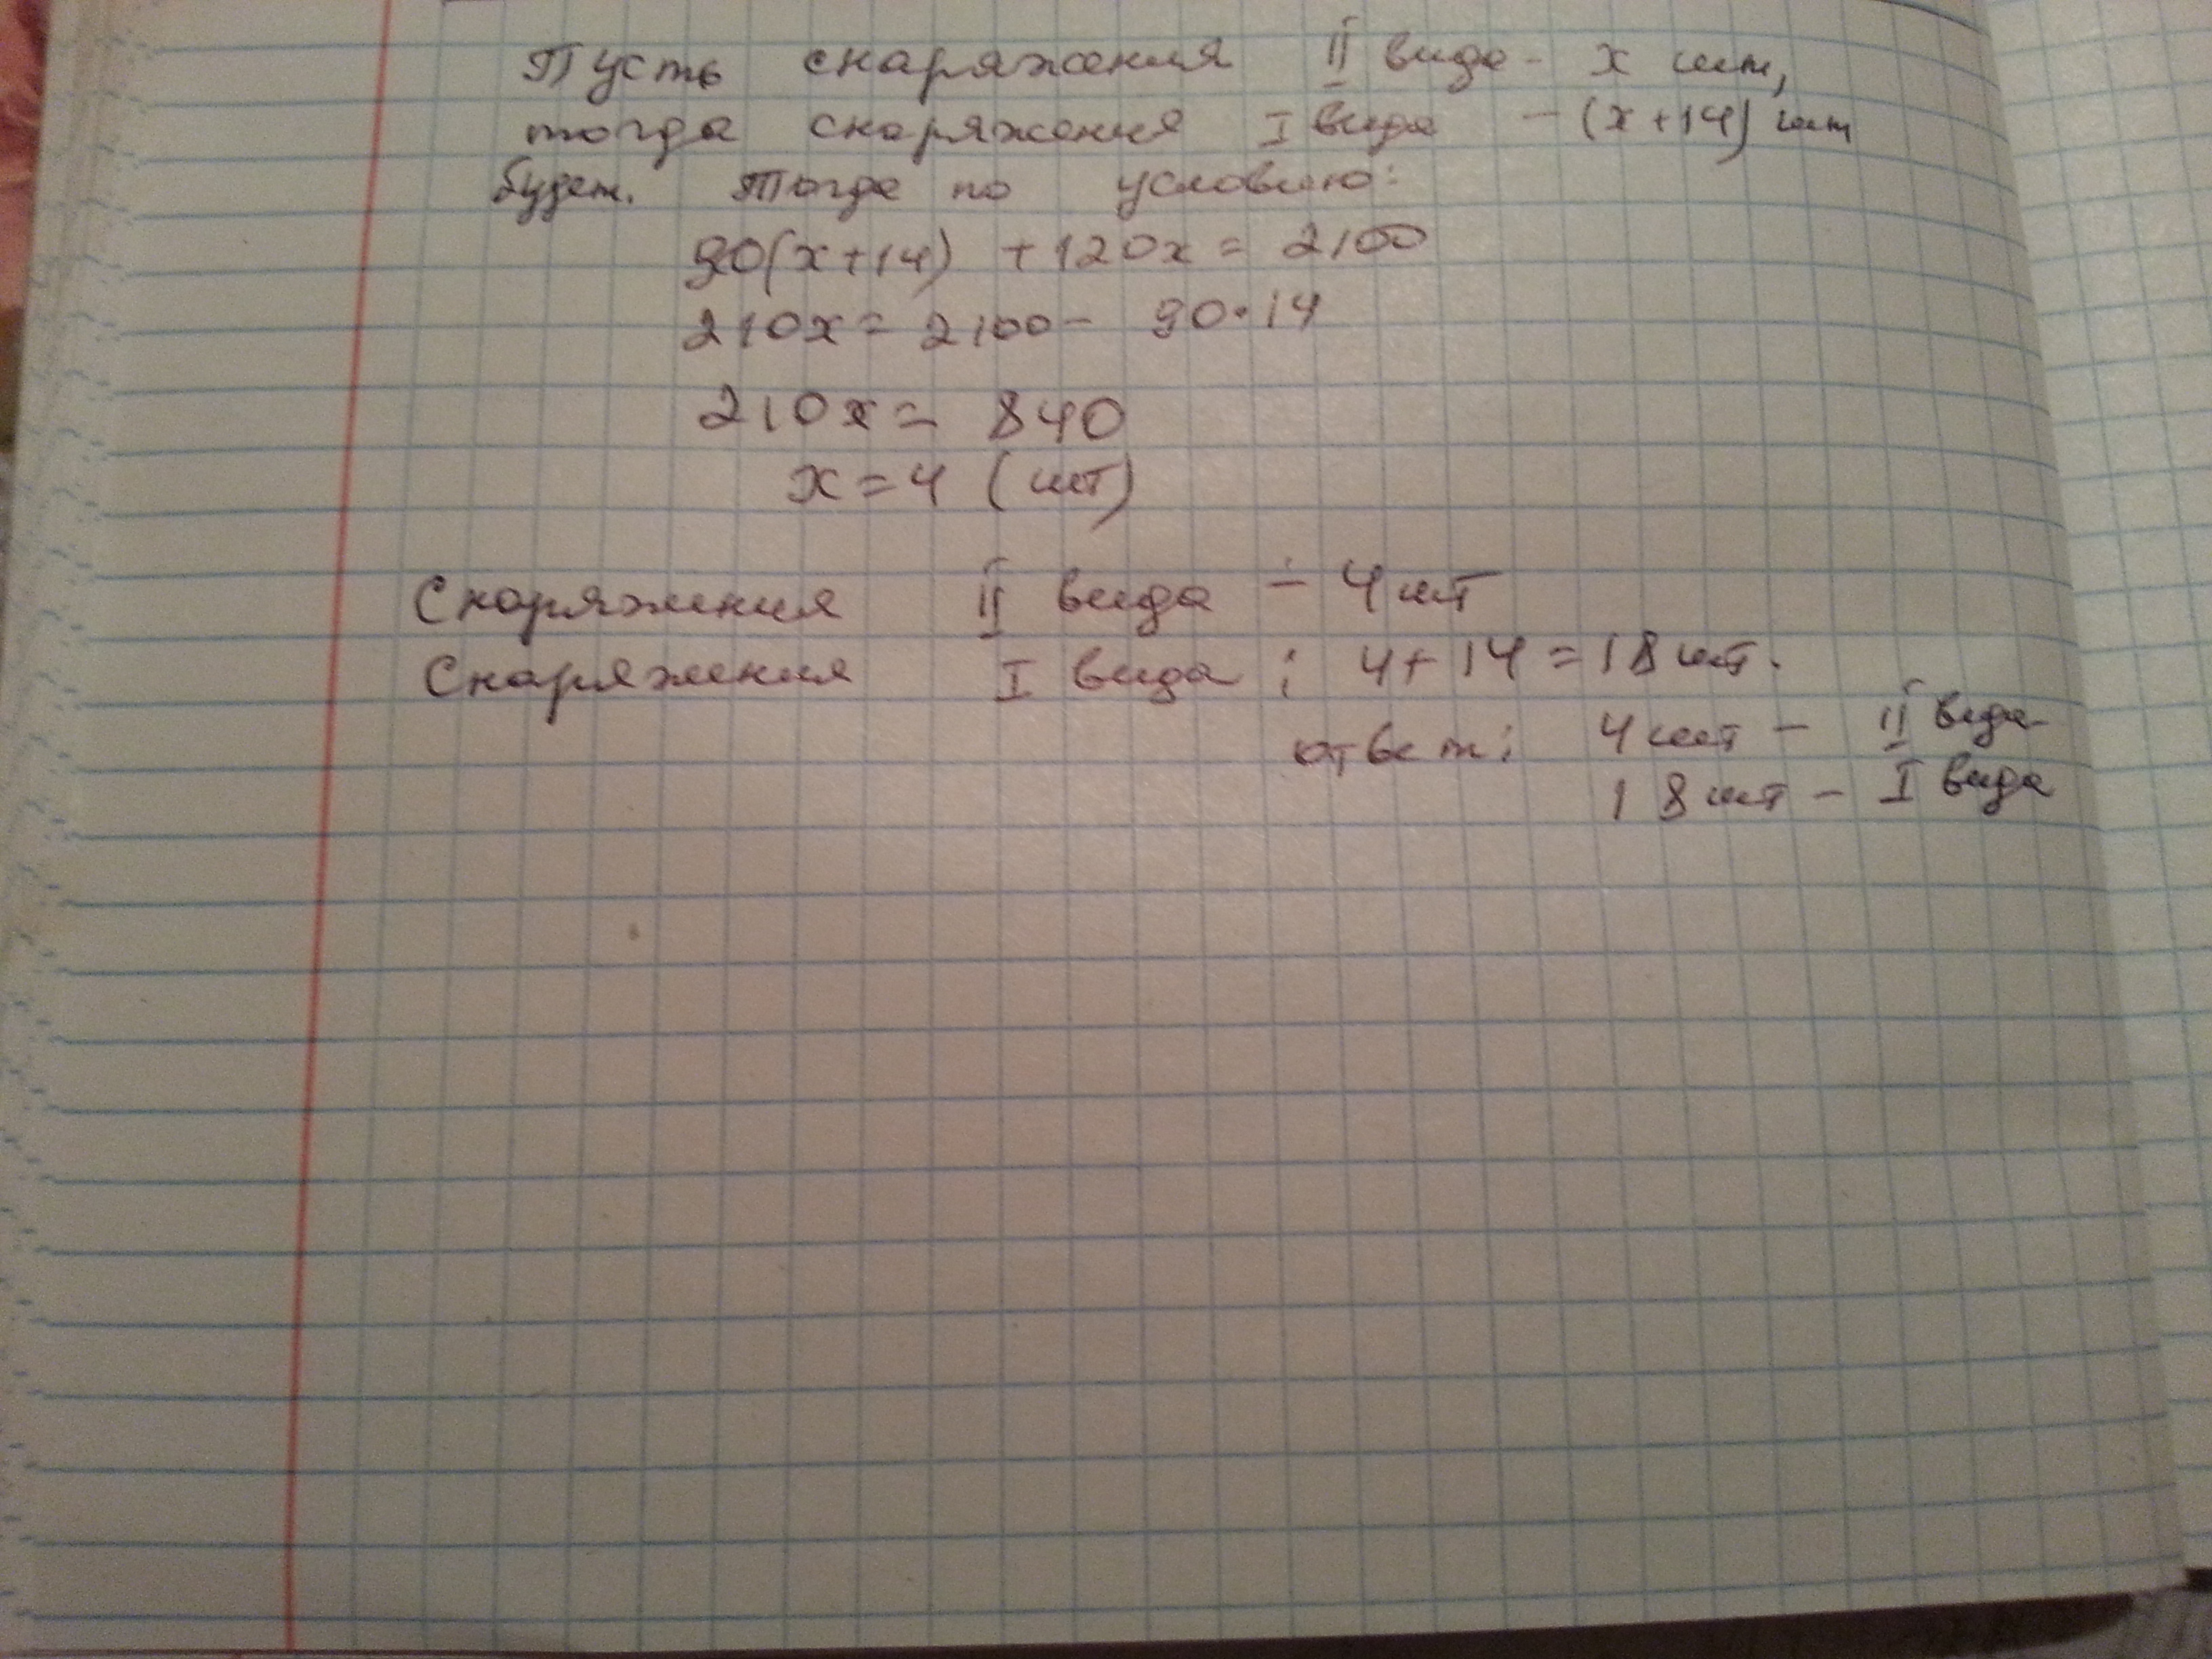 Пусть снаряжения II вида - x шт,
тогда снаряжения I вида - (x+14) шт
будет. Тогда по условию:
90(x+14) + 120x = 2100
210x = 2100 - 90·14
210x = 840
x = 4 (шт)
Снаряжения II вида - 4 шт
Снаряжения I вида : 4 + 14 = 18 шт.
ответ: 4 шт - II вида
18 шт - I вида